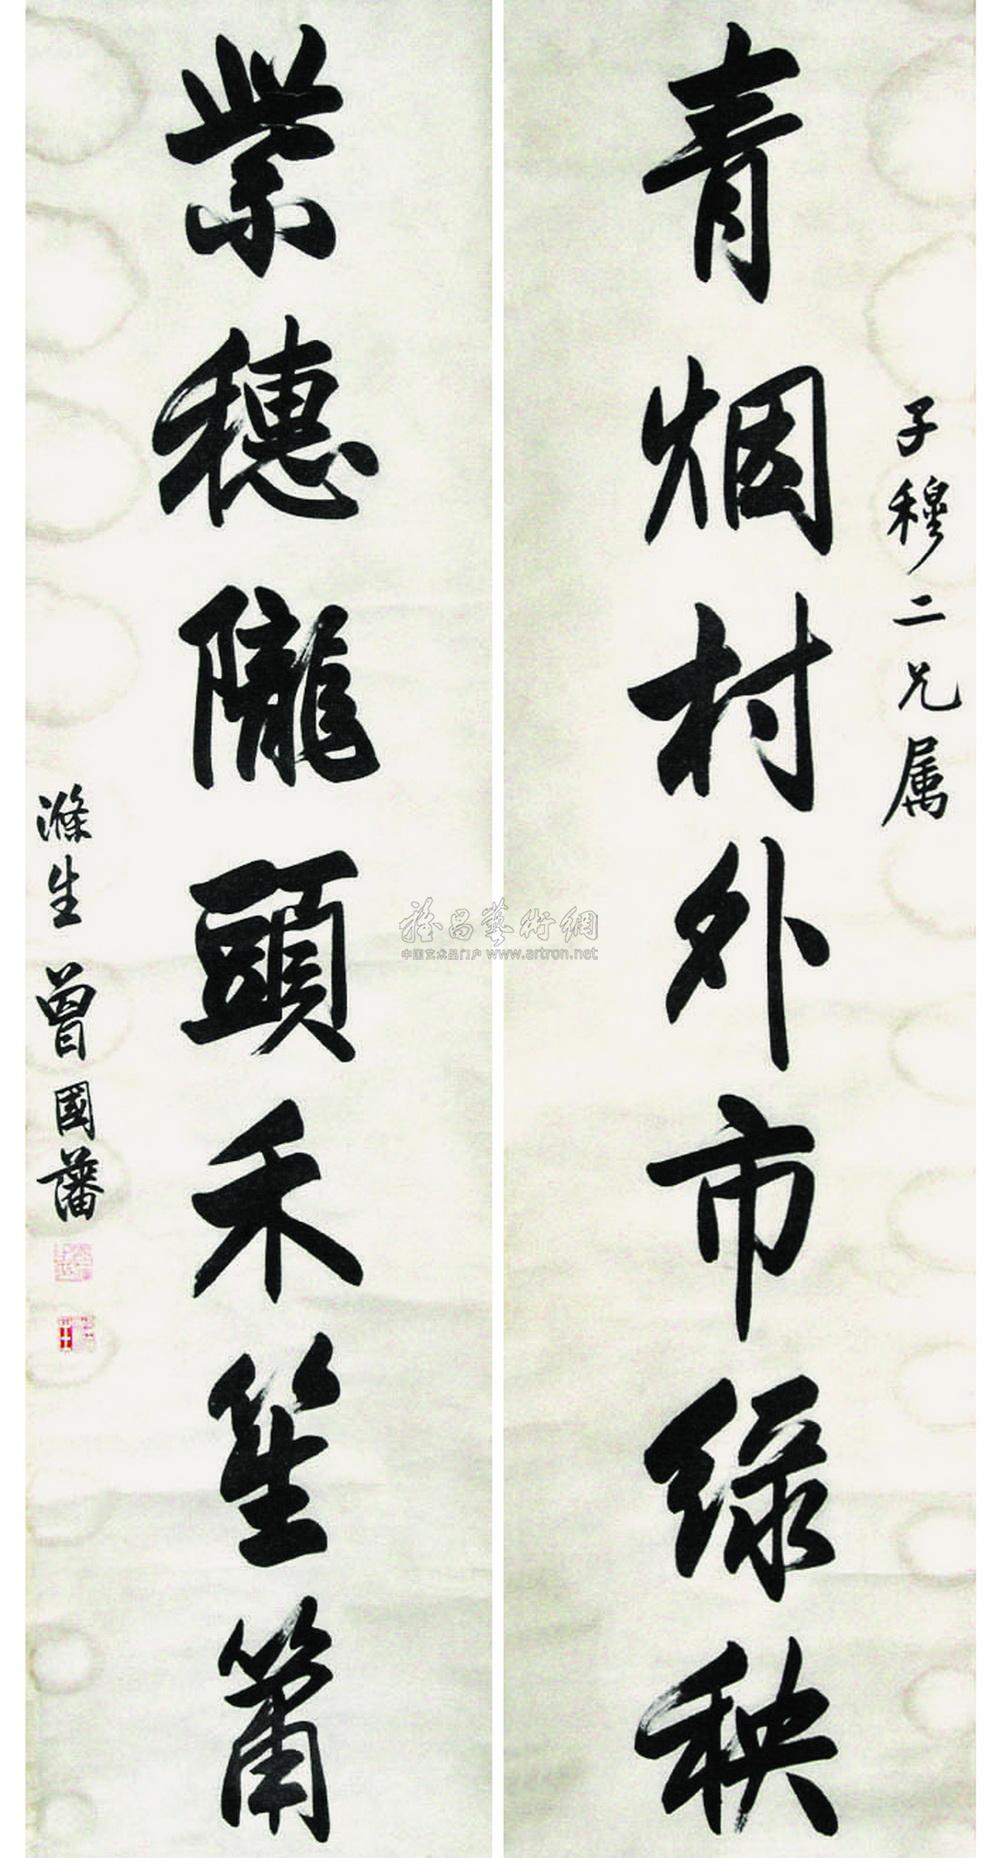 子穆二兄属
青烟村外市绿秧
紫穗隴頭禾笙簫
滌生曾國藩
雅昌藝術網
中国艺术品门户 www.artron.net